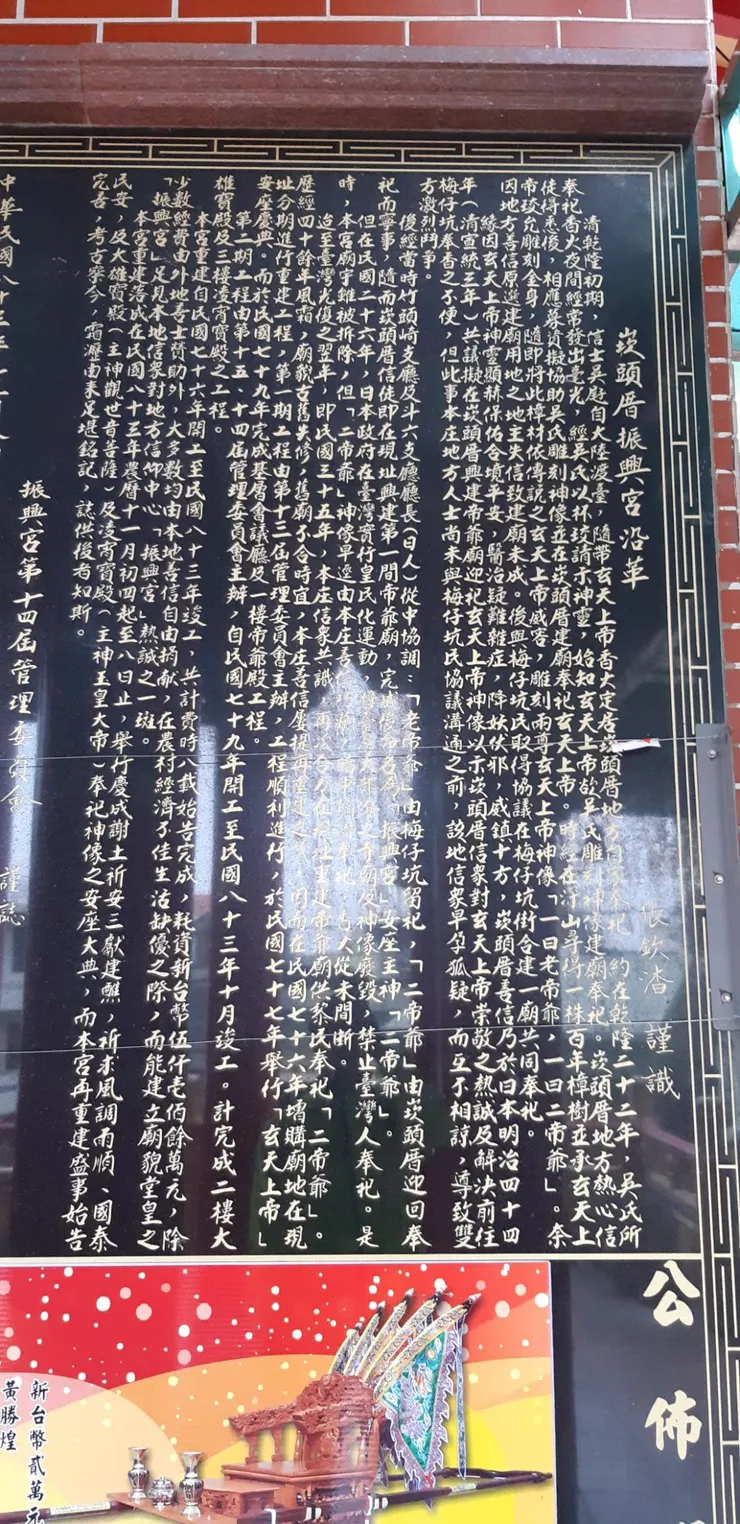 崁頭厝振興宮沿革
張欽 謹識
清乾隆初期，信士吳 自大陸渡臺，隨帶玄天上帝香火定居崁頭厝地方 奉祀 約在乾隆二十二年，吳氏所
奉祀香火夜間經常發出毫光，經吳氏以杯珓請示神靈，始知玄天上帝欲吳氏雕刻神像建廟奉祀。崁頭厝地方熱心信
徒得悉後，相應募資擬協助吳氏雕刻神像並在崁頭厝建廟奉祀玄天上帝。時經在 山尋得一株百年樟樹並承玄天上
帝珓允雕刻金身，隨即將此樟材依傳說之玄天上帝威容，雕刻兩尊玄天上帝神像「一曰老帝爺，一曰二帝爺」。奈
因地方善信原選建廟用地之地主失信致建廟未成。後與梅仔坑民取得協議在梅仔坑街合建一廟共同奉祀。
緣因玄天上帝神靈顯赫保佑合境平安，醫治疑難雜症，降妖伏邪，威鎮十方，崁頭厝善信乃於日本明治四十四
年（清宣統三年）共議擬在崁頭厝興建帝爺廟迎祀玄天上帝神像以示崁頭厝信衆對玄天上帝崇敬之熱誠及解決前往
梅仔坑奉香之不便，但此事本庄地方人士尚未與梅仔坑民協議溝通之前，該地信衆早 狐疑，而互不相諒，導致雙
方激烈鬥爭。
後經當時竹頭崎支廳及斗六支廳廳長（日人）從中協調：「老帝爺」由梅仔坑留祀，「二帝爺」由崁頭厝迎回奉
祀而寧事，隨而崁頭厝信徒即在現址興建第一間帝爺廟，完 名為「振興宮」安座主神「二帝爺」。
但在民國二十六年，日本政府在臺灣實行皇民化運動， 寺廟及神像廢毀，禁止臺灣人奉祀。是
時，本宮廟宇雖被拆除，但「二帝爺」神像早逕由本庄善信 奉祀，香火從未間斷。
迨至臺灣光復之翌年，即民國三十五年，本庄信衆共議 再 在 址重建帝爺廟供黎民奉祀「二帝爺」。
歷經四十餘年風霜，廟貌古舊失修，舊廟不合時宜，本庄善信屢提再重建之 ，因而在民國七十六年增購廟地在現
址分期進行重建工程，第一期工程由第十三屆管理委員會主辦，工程順利進行，於民國七十七年舉行「玄天上帝」
安座慶典。而於民國七十九年完成基層會議廳及一樓帝爺殿工程。
第二期工程由第十五、十四屆管理委員會主辦，自民國七十九年開工至民國八十三年十月竣工。計完成二樓大
雄寶殿及三樓凌霄寶殿之工程。
本宮重建自民國七十六年開工至民國八十三年竣工，共計費時八載始告完成，耗資新台幣伍仟壱佰餘萬元，除
少數經費由外地善士贊助外，大多數均由本地善信自由捐献，在農村經濟不佳生活缺優之際，而能建立廟貌堂皇之
「振興宮」足見本地信衆對地方信仰中心「振興宮」熱誠之一斑。
本宮重建落成在民國八十三年農曆十一月初四起至八日止，舉行慶成謝土祈安三獻建醮，祈求風調雨順、國泰
民安，及大雄寶殿（主神觀世音菩薩）及凌霄寶殿（主神玉皇大帝）奉祀神像之安座大典，而本宮再重建盛事始告
完善，考古察今，霜瀰由来足堪銘記，誌供後者知斯。
振興宮第十四屆管理委員會 謹誌
中華民國八十三年十
公佈
新台幣貳萬元
黃勝煌